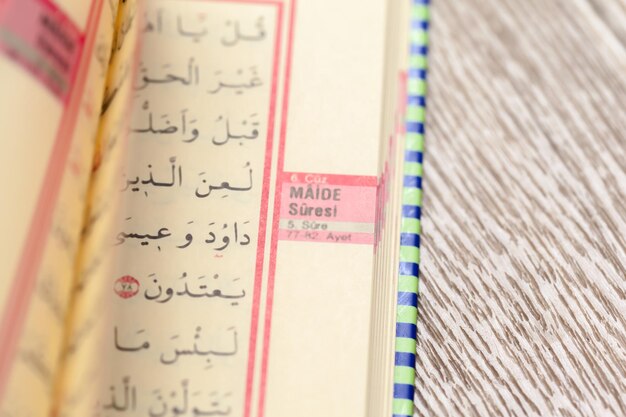 قُلْ يَا
غَيْرَ الْحَقِّ
قَبْلُ وَأَضَلُّ
لُعِنَ الَّذِينَ
دَاوُدَ وَعِيسَى
يَعْتَدُونَ ﴿٧٨﴾
لَبِئْسَ مَا
يَتَوَلَّوْنَ الَّذِ
6. Cüz
MÂİDE
Sûresi
5. Sûre
77-82 Ayet